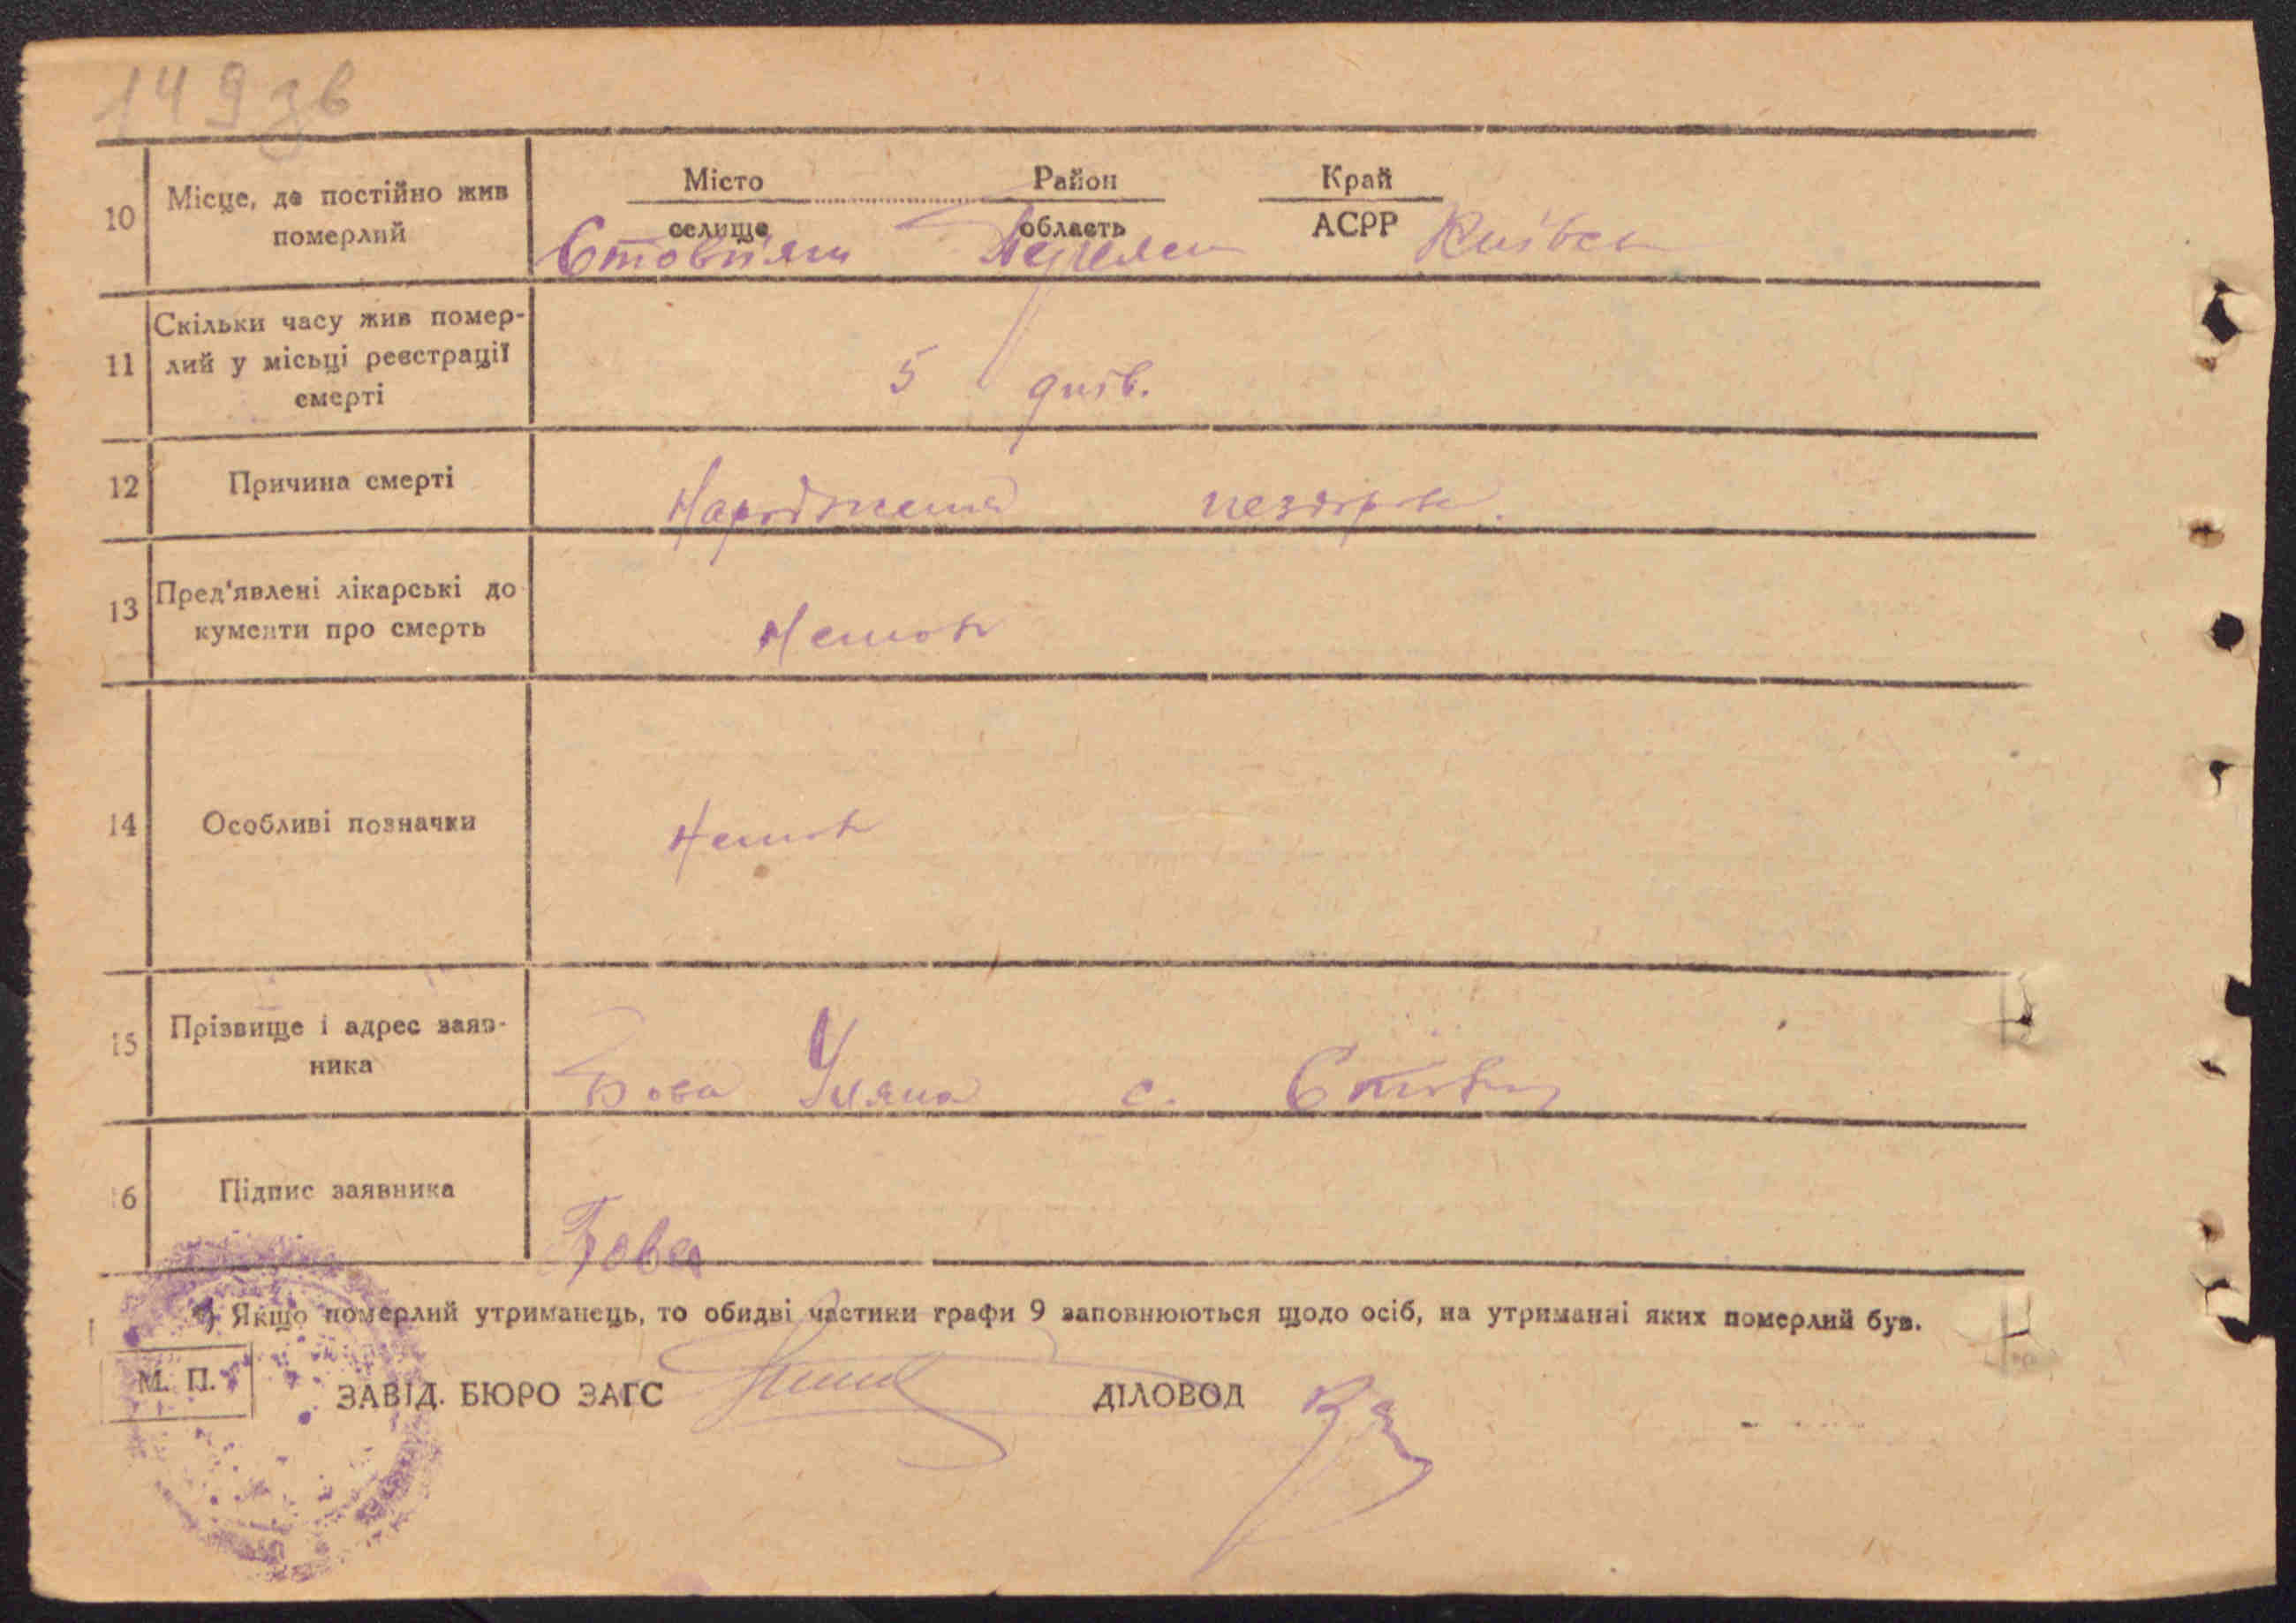 149 зв
10 Місце, де постійно жив померлий
Місто Район Край
селище область АСРР
Стовп'яги Київськ
11 Скільки часу жив помер-
лий у місьці реєстрації
смерті
5 днів.
12 Причина смерті
Народження нездоров.
13 Пред'явлені лікарські до
кументи про смерть
Немає
14 Особливі позначки
Немає
15 Прізвище і адрес заяв-
ника
Бова Уляна с. Стовп
16 Підпис заявника
Бова
*) Якщо померлий утриманець, то обидві частини графи 9 заповнюються щодо осіб, на утриманні яких померлий був.
М. П.
ЗАВІД. БЮРО ЗАГС ДІЛОВОД